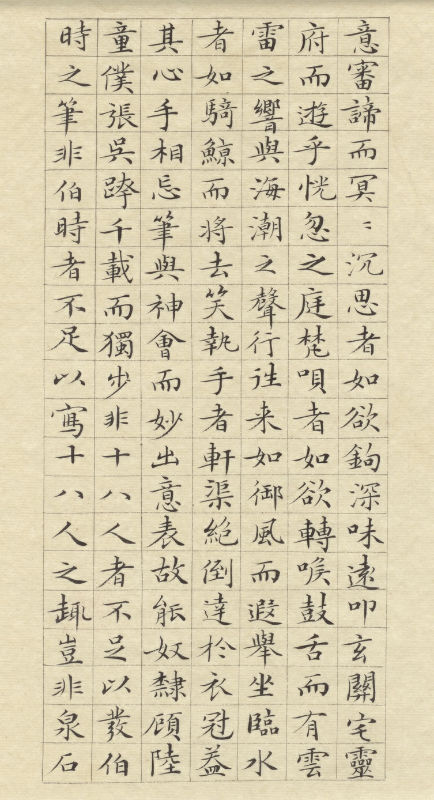 意審諦而冥〻沉思者如欲鉤深味遠叩玄關宅靈
府而遊乎恍忽之庭梵唄者如欲轉喉鼓舌而有雲
雷之響與海潮之聲行往来如御風而遐舉坐臨水
者如騎鯨而將去笑執手者軒渠絕倒達於衣冠蓋
其心手相忘筆與神會而妙出意表故能奴隸顧陸
童僕張吳跨千載而獨步非十八人者不足以發伯
時之筆非伯時者不足以寫十八人之趣豈非泉石